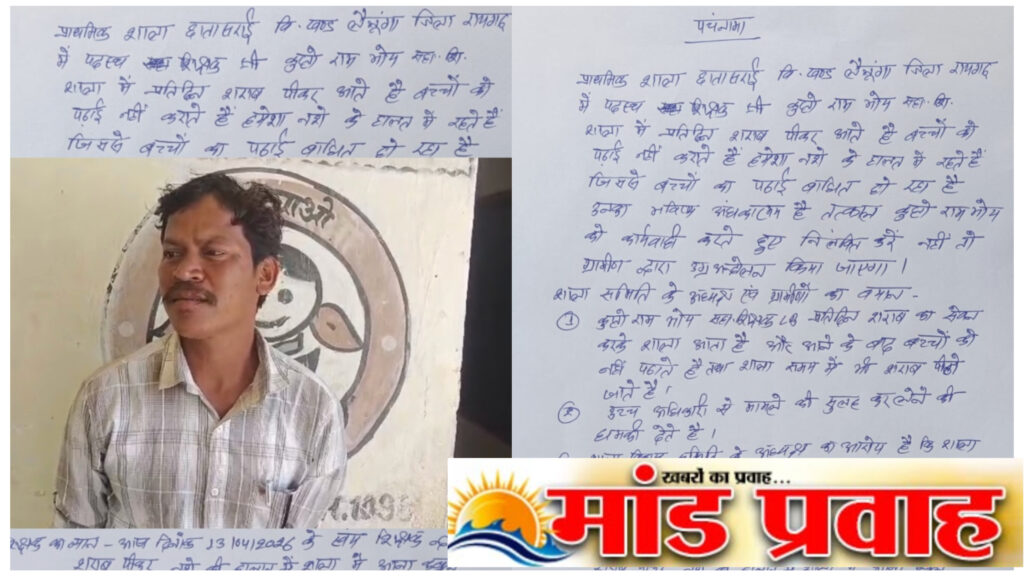 प्राथमिक शाला छातासरई वि.खण्ड लैलूंगा जिला रायगढ़
में पदस्थ शिक्षक श्री कुहरो राम भोय सहा.शि.
शाला में प्रतिदिन शराब पीकर आते है बच्चों को
पढाई नहीं कराते हैं हमेशा नशे के हालत में रहते हैं
जिससे बच्चों का पढाई बाधित हो रहा है
पंचनामा
प्राथमिक शाला छातासरई वि.खण्ड लैलूंगा जिला रायगढ़
में पदस्थ शिक्षक श्री राम भोय सहा.शि.
शाला में प्रतिदिन शराब पीकर आते है बच्चों को
पढाई नहीं कराते हैं हमेशा नशे के हालत में रहते हैं
जिससे बच्चों का पढाई बाधित हो रहा है
उनका भविष्य अंधकारमय है तत्काल राम भोय
को कार्यवाही करते हुए निलंबित करें नहीं तो
ग्रामीण द्वारा उग्र आन्दोलन किया जाएगा।
शाला समिति के अध्यक्ष एवं ग्रामीणों का बयान -
① राम भोय सहा.शिक्षक LB प्रतिदिन शराब का सेवन
करके शाला आता है और आने के बाद बच्चों को
नहीं पढाते है तथा शाला समय में भी शराब पीने
जाते है।
② उच्च अधिकारी से मामले को सुलह कर लेने की
धमकी देते है।
समिति के अध्यक्ष का आरोप है कि शाला
1.1098
खबरों का प्रवाह...
मांड प्रवाह
आज दिनांक 13/04/2026 के
शराब पीकर नशे की हालत में शाला में आना